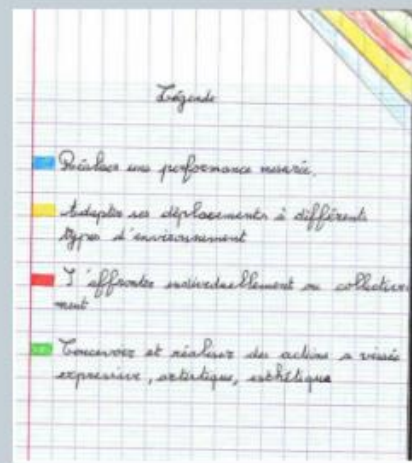 Légende
Réaliser une performance mesurée.
Adapter ses déplacements à différents
types d'environnement
S'affronter individuellement ou collective
ment
Concevoir et réaliser des actions a visée
expressive, artistique, esthétique